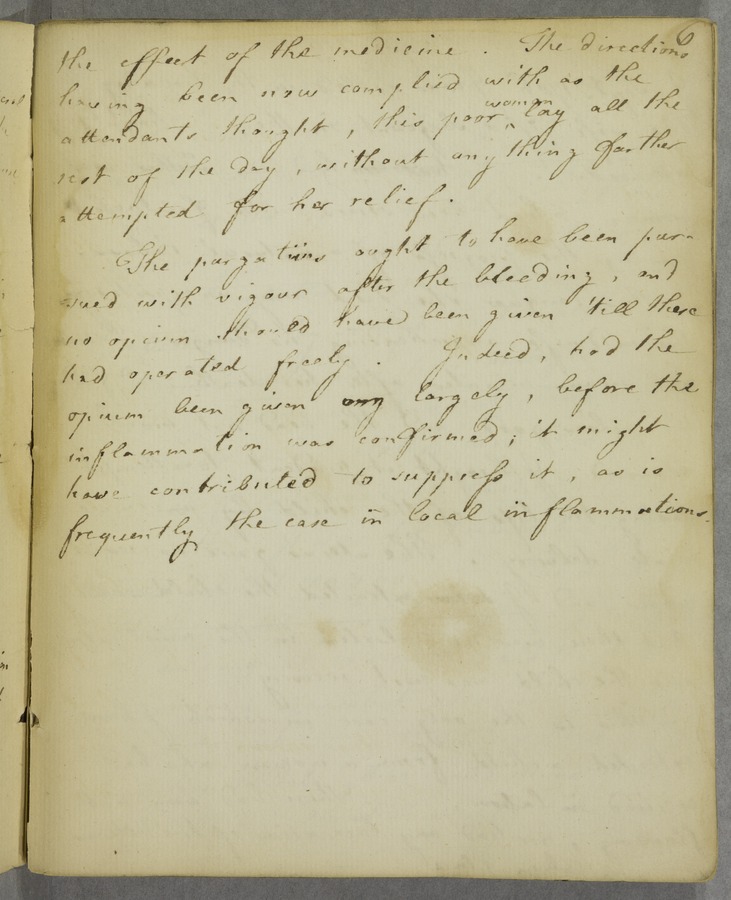 6
the effect of the medicine . The directions
having been now complied with as the
attendants thought , this poor woman lay all the
rest of the day , without any thing farther
attempted for her relief .
The purgations ought to have been pur-
sued with vigour after the bleeding , and
no opium should have been given 'till these
had operated freely . Indeed , had the
opium been given largely , before the
inflammation was confirmed ; it might
have contributed to suppress it , as is
frequently the case in local inflammations .